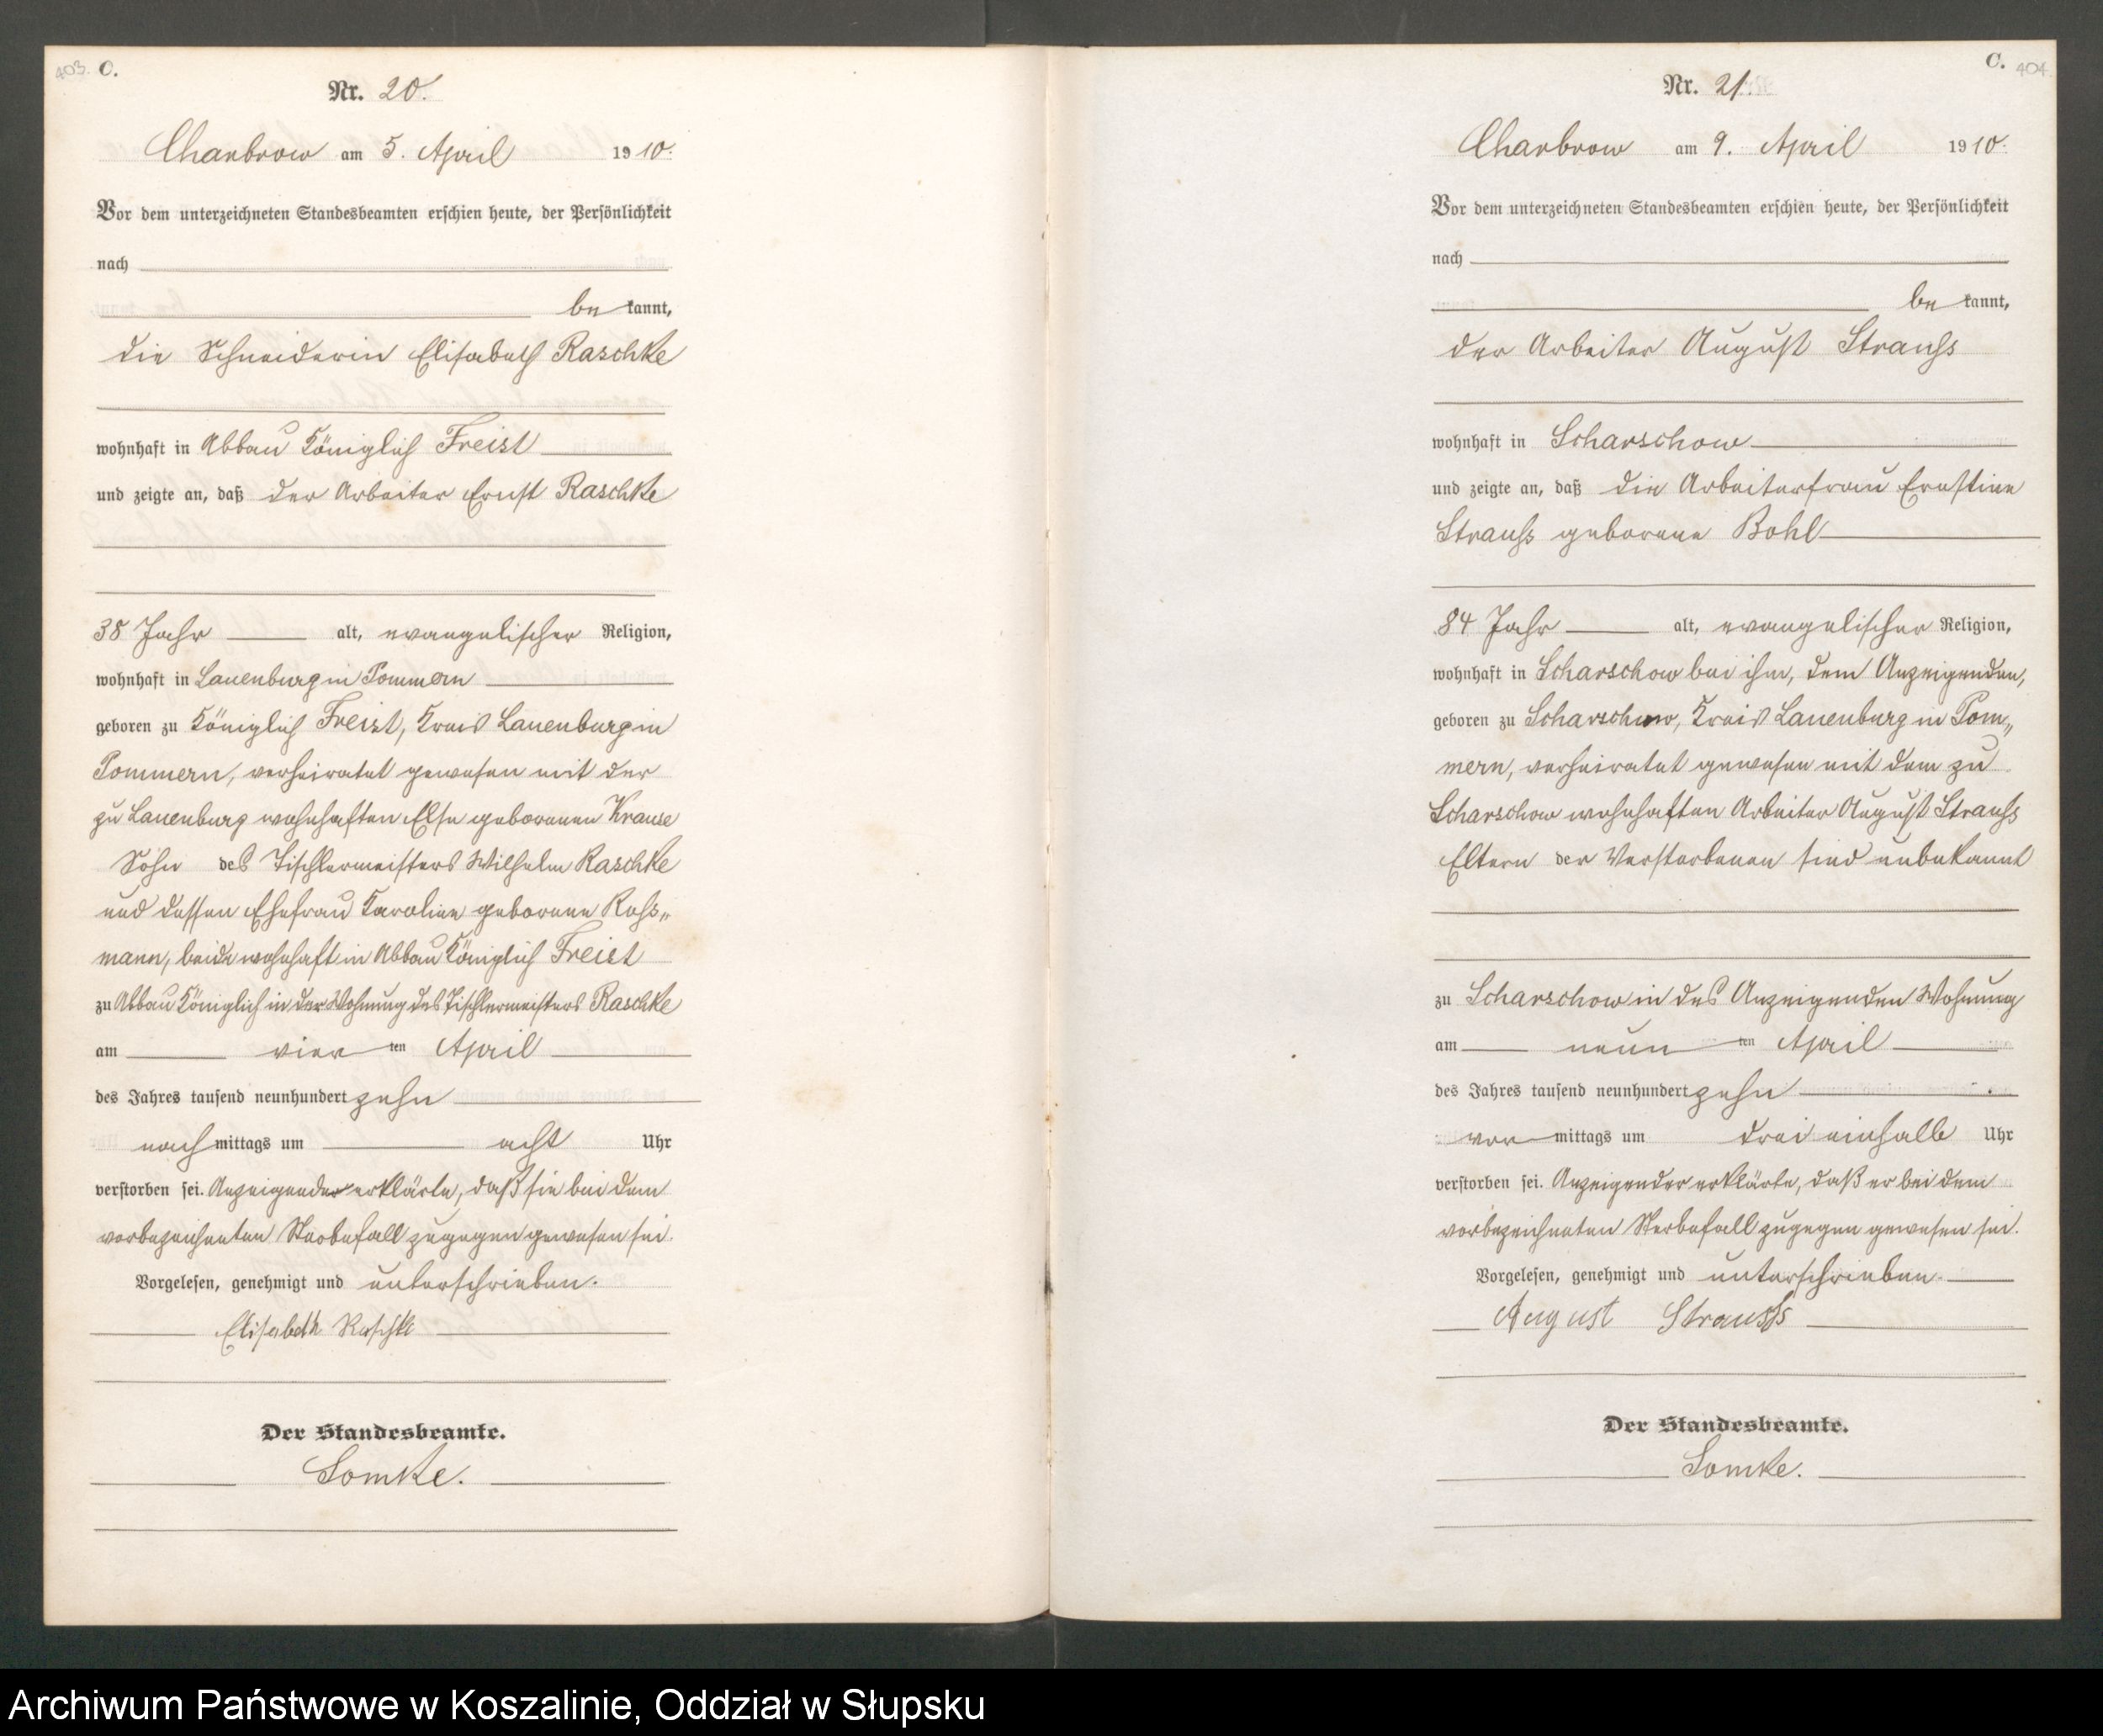 403. C.
Nr. 20.
Charbrow am 5. April 1910.
Vor dem unterzeichneten Standesbeamten erschien heute, der Persönlichkeit
nach
be kannt,
die Schneiderin Elisabeth Raschke
wohnhaft in Abbau Königlich Freist
und zeigte an, daß der Arbeiter Ernst Raschke
38 Jahr alt, evangelischer Religion,
wohnhaft in Lauenburg in Pommern
geboren zu Königlich Freist, Kreis Lauenburg in
Pommern, verheiratet gewesen mit der
zu Lauenburg wohnhaften Else geborenen Krause
Sohn des Tischlermeisters Wilhelm Raschke
und dessen Ehefrau Karoline geborene Ross„
mann, beide wohnhaft in Abbau Königlich Freist
zu Abbau Königlich in der Wohnung des Tischlermeisters Raschke
am vier ten April
des Jahres tausend neunhundert zehn
nach mittags um acht Uhr
verstorben sei. Anzeigende erklärte, daß sie bei dem
vorbezeichneten Sterbefall zugegen gewesen sei.
Vorgelesen, genehmigt und unterschrieben.
Elisabeth Raschke
Der Standesbeamte.
Lomke.
C. 404
Nr. 21.
Charbrow am 9. April 1910.
Vor dem unterzeichneten Standesbeamten erschien heute, der Persönlichkeit
nach
be kannt,
der Arbeiter August Strauss
wohnhaft in Scharschow
und zeigte an, daß die Arbeiterfrau Ernstine
Strauss geborene Bohl
84 Jahr alt, evangelischer Religion,
wohnhaft in Scharschow bei ihm, dem Anzeigenden,
geboren zu Scharschow, Kreis Lauenburg in Pom„
mern, verheiratet gewesen mit dem zu
Scharschow wohnhaften Arbeiter August Strauss
Eltern der Verstorbenen sind unbekannt
zu Scharschow in des Anzeigenden Wohnung
am neun ten April
des Jahres tausend neunhundert zehn
vor mittags um drei einhalb Uhr
verstorben sei. Anzeigender erklärte, daß er bei dem
vorbezeichneten Sterbefall zugegen gewesen sei.
Vorgelesen, genehmigt und unterschrieben.
August Strauss
Der Standesbeamte.
Lomke.
Archiwum Państwowe w Koszalinie, Oddział w Słupsku